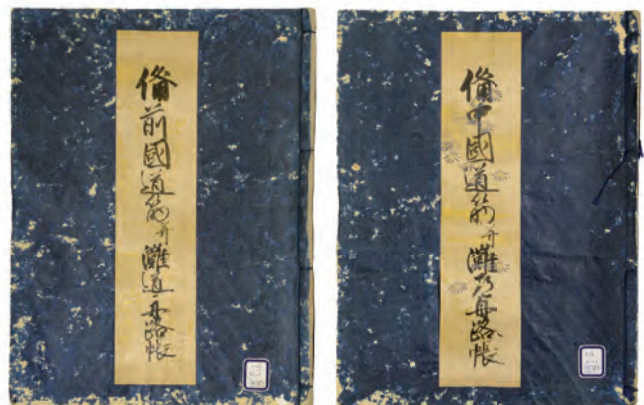 備前國道筋并灘道舟路帳
備中國道筋并灘道舟路帳